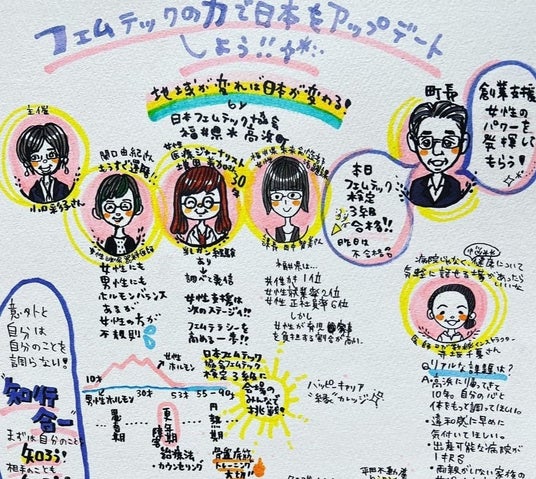 フェムテックの力で日本をアップデート
しよう!!
地域が変われば日本が変わる!
by
日本フェムテック協会
福井県 高浜
主催
関口由紀さん
もうすぐ還暦!!
女性
医療ジャーナリスト
町長
創業支援
女性の
パワーを
発揮して
もらう!
本日
フェムテック
検定
3級
合格!!
昨日は
不合格
女性にも
男性にも
ホルモンバランス
あるが
女性の方が
不規則
あり
調べて発信
女性支援は
次のステージ!!
フェムテラシーを
高める一歩!!
福井県は…
共働き1位
女性就業率2位
女性正社員率6位
しかし
女性が育児家事
を負担する割合が高い。
病院じゃなく健康について
気軽に話せる場があったら
いいな
Q.リアルな課題は?
A.高浜に帰ってきて
10年。自分の心と
体をもっと調ってほしい。
・違和感に早めに
気付いてほしい。
・出産可能な病院が
意外と
自分は
自分のことを
調らない!
"知行
合一"
まずは自分のこと
知ろう!
相手のことも
女性
ホルモン
10才
男性ホルモン 30才 53 55-90才
思春期
更年期
障害
治療法
・カウンセリング
円熟期
骨盤底筋
トレーニング
大切!!
日本フェムテック
協会フェムテック
検定3級に
会場の
みんなで
挑戦!
ハッピーキャリア
"縁"カレッジ
平田不動産